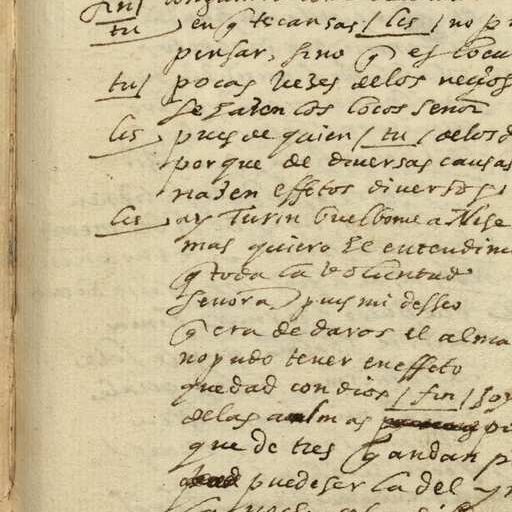 fin/
tu en q̃ te cansas / lis / no p
pensar, sino q̃ es locu
tu/ pocas vezes de los neçios
se hazen los locos señor
lis pues de quien / tu / de los d
porque de diversas causas
nazen effetos diversos
lis ay Turin buelbome a Nise
mas quiero le entendim
q̃ toda la voluntad
señora, pues mi desseo
q̃ era de daros el alma
no pudo tener en effeto
quedad con dios / fin / soy
de las almas
que de tres q̃ andan p
puede ser la del yn